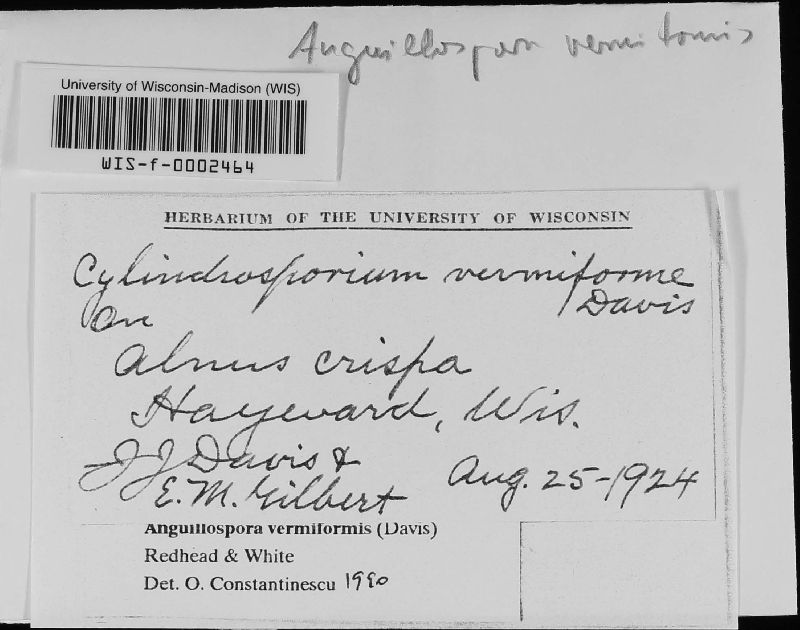 Anguillospora vermiformis
University of Wisconsin-Madison (WIS)
WIS-f-0002464
HERBARIUM OF THE UNIVERSITY OF WISCONSIN
Cylindrosporium vermiforme
Davis
On
Alnus crispa
Hayward, Wis.
J J Davis &
E. M. Gilbert
Aug. 25-1924
Anguillospora vermiformis (Davis)
Redhead & White
Det. O. Constantinescu 1990